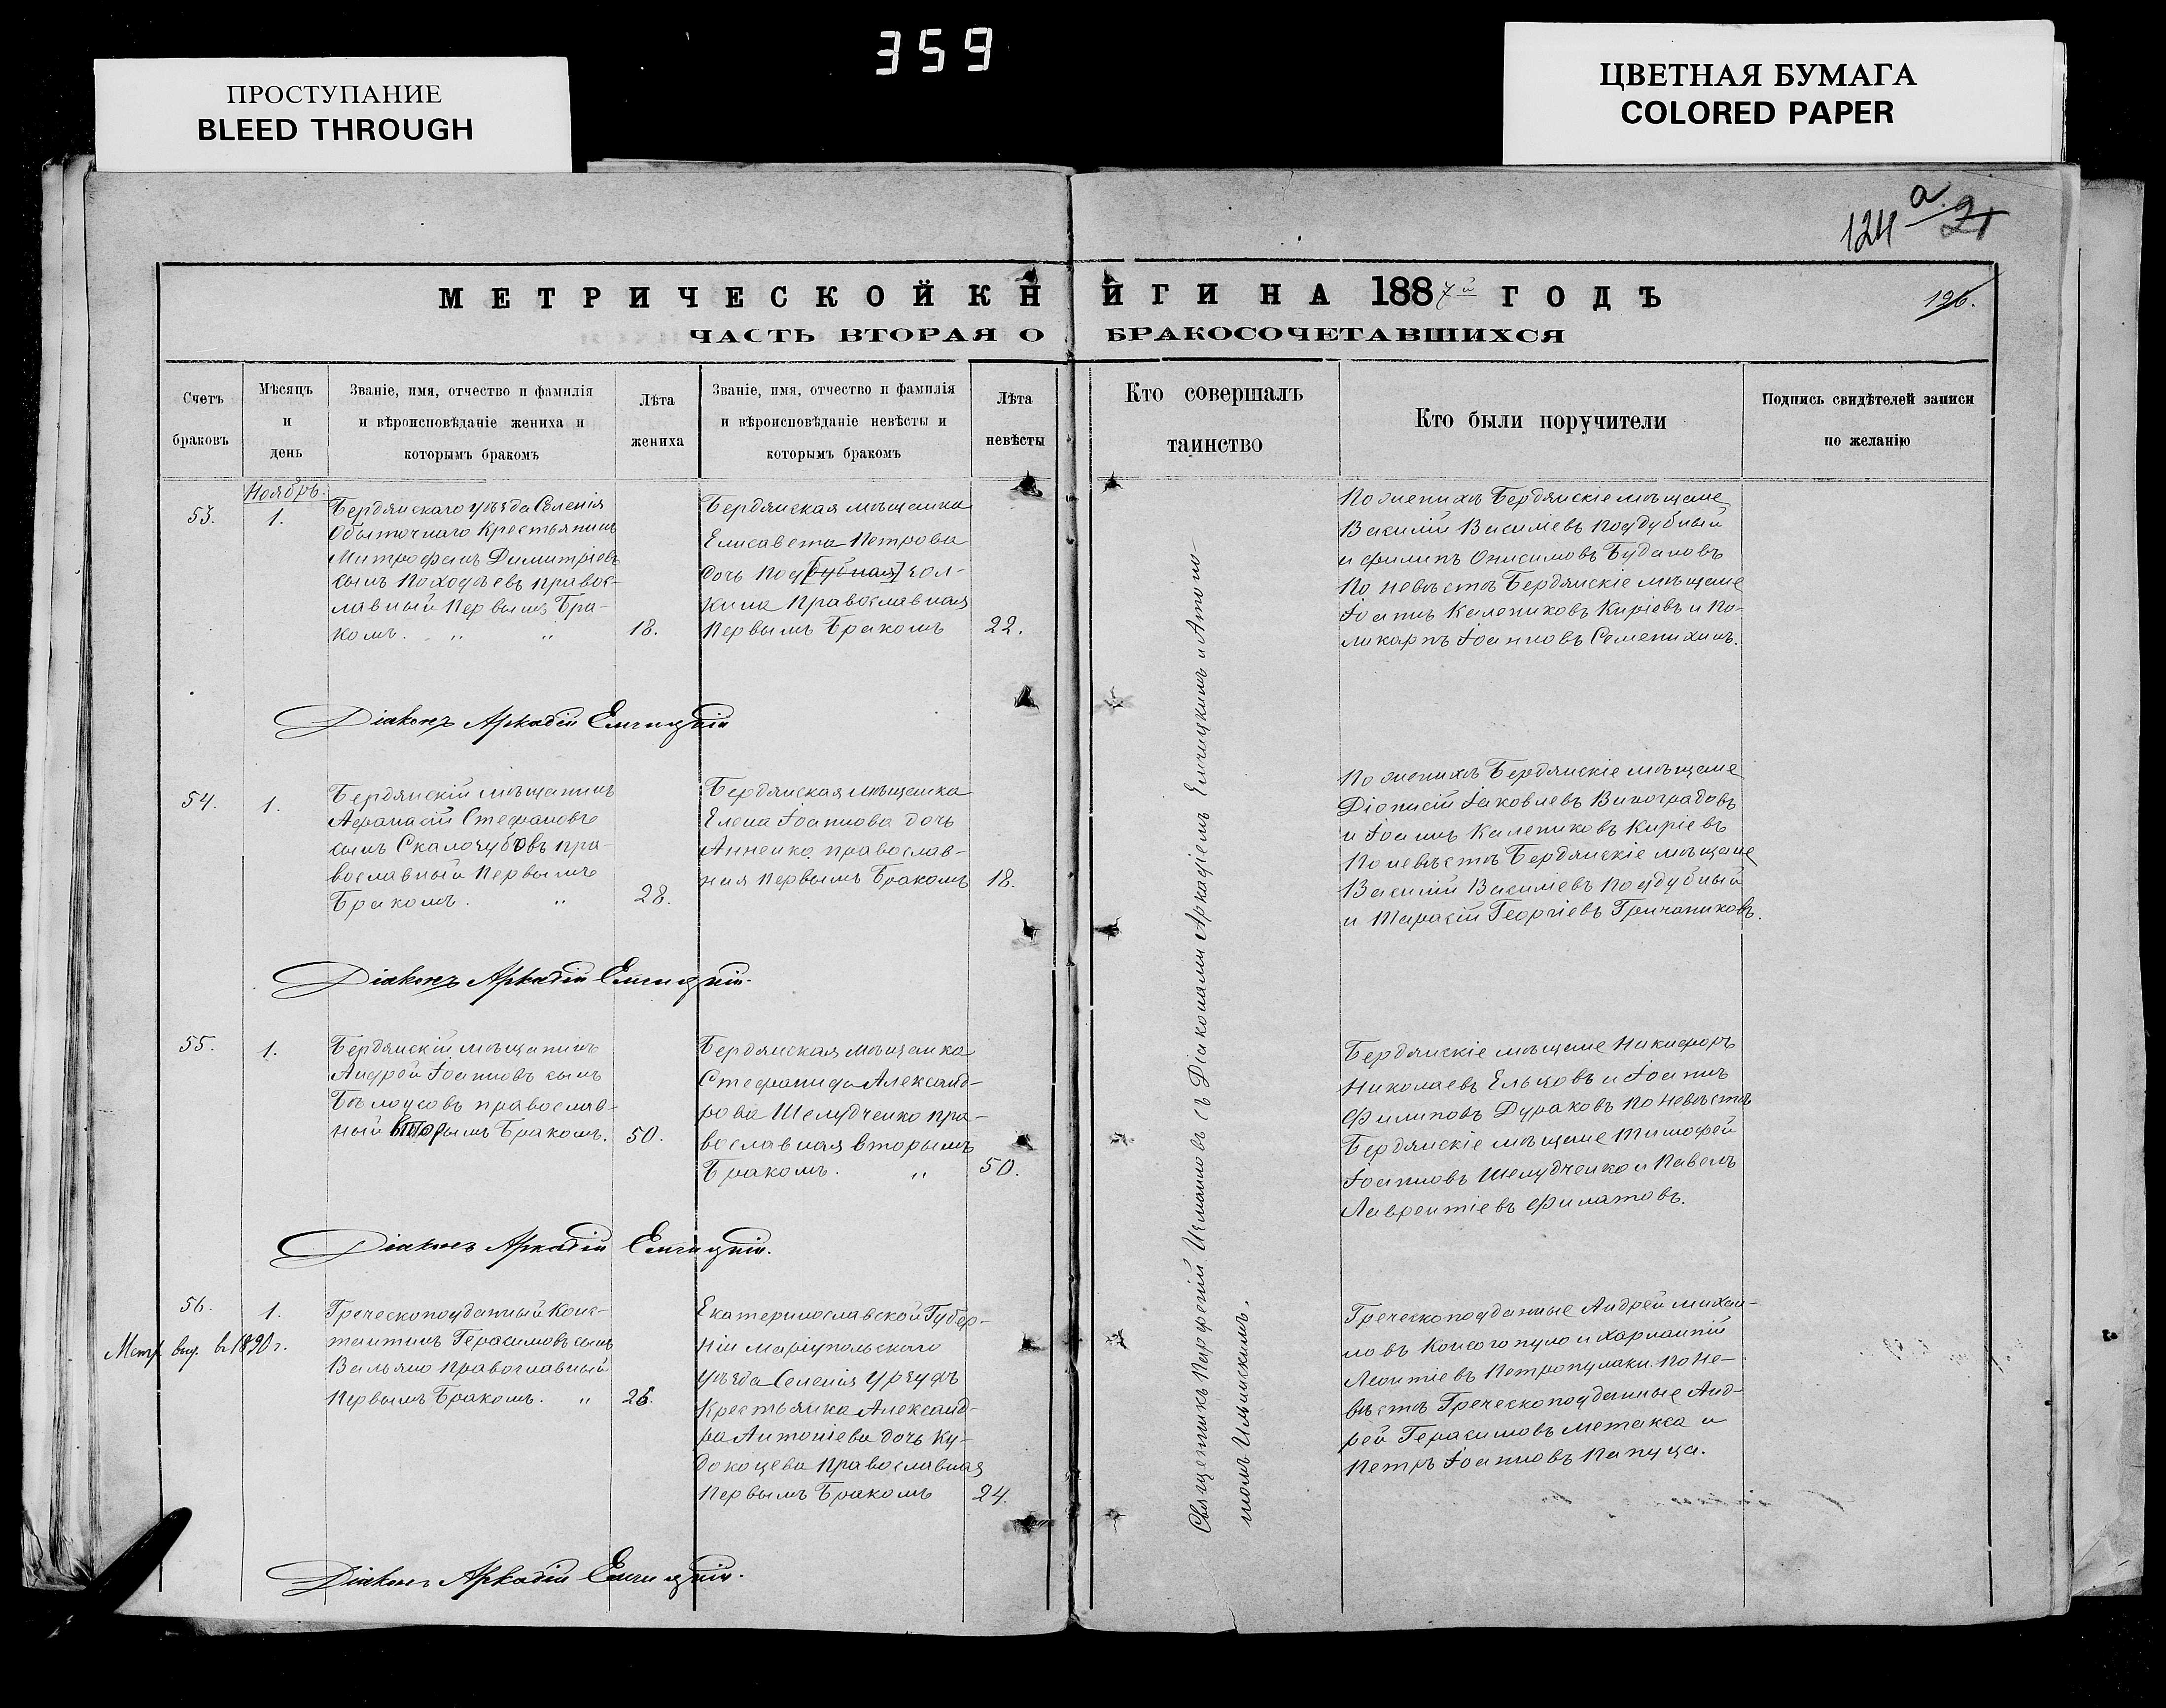 359
ПРОСТУПАНИЕ
BLEED THROUGH
ЦВЕТНАЯ БУМАГА
COLORED PAPER
124 а 21
МЕТРИЧЕСКОЙ КНИГИ НА 1887й ГОДЪ
126.
ЧАСТЬ ВТОРАЯ О БРАКОСОЧЕТАВШИХСЯ
Счетъ
браковъ
Мѣсяцъ
и
день
Званіе, имя, отчество и фамилія
и вѣроисповѣданіе жениха и
которымъ бракомъ
Лѣта
жениха
Званіе, имя, отчество и фамилія
и вѣроисповѣданіе невѣсты и
которымъ бракомъ
Лѣта
невѣсты
Кто совершалъ
таинство
Кто были поручители
Подпись свидѣтелей записи
по желанію
Ноябрь.
53.
1.
Бердянскаго уѣзда Селенія
Обыточнаго Крестьянинъ
Митрофанъ Димитріевъ
сынъ Походѣевъ правос-
лавный Первымъ Бра-
комъ. „ „
18.
Бердянская мѣщанка
Елисавета Петрова
дочь Под[дубная] Гол-
кина Православная
Первымъ Бракомъ
22.
По женихѣ Бердянскіе мѣщане
Василій Василіевъ Поддубный
и Филипъ Онисимовъ Будановъ
По невѣстѣ Бердянскіе мѣщане
Іоаннъ Калениковъ Киріевъ и По-
ликарпъ Іоанновъ Семенихинъ.
Діаконъ Аркадій Емчицкій
54.
1.
Бердянскій мѣщанинъ
Афанасій Стефановъ
сынъ Скалочубовъ пра-
вославный Первымъ
Бракомъ. „
28.
Бердянская мѣщанка
Елена Іоаннова дочь
Анненко православ-
ная Первымъ Бракомъ
18.
По женихѣ Бердянскіе мѣщане
Діонисій Іаковлевъ Виноградовъ
и Іоаннъ Калениковъ Киріевъ
По невѣстѣ Бердянскіе мѣщане
Василій Василіевъ Поддубный
и Тарасій Георгіевъ Гречаниковъ.
Діаконъ Аркадій Емчицкій.
55.
1.
Бердянскій мѣщанинъ
Андрей Іоанновъ сынъ
Бѣлоусовъ православ-
ный Вторымъ Бракомъ.
50.
Бердянская мѣщанка
Стефанида Александ-
рова Шелудченко пра-
вославная вторымъ
Бракомъ. „
50.
Бердянскіе мѣщане Никифоръ
Николаевъ Ельцовъ и Іоаннъ
Филиповъ Дураковъ По невѣстѣ
Бердянскіе мѣщане Тимофей
Іоанновъ Шелудченко и Павелъ
Лаврентіевъ Филатовъ.
Діаконъ Аркадій Емчицкій.
56.
1.
Метр. выд. въ 1890 г.
Греческоподданный Конс-
тантинъ Герасимовъ сынъ
Вальямо Православный
Первымъ Бракомъ. „
26.
Екатеринославской Губер-
ніи Маріупольскаго
уѣзда Селенія Урзуфъ
Крестьянка Александ-
ра Антоніева дочь Ку-
докоцева Православная
Первымъ Бракомъ
24.
Греческоподданные Андрей Михаи-
ловъ Консогопуло и Харлампій
Леонтіевъ Петропулаки. По не-
вѣстѣ Греческоподданные Анд-
рей Герасимовъ Метакса и
Петръ Іоанновъ Папуца.
Діаконъ Аркадій Емчицкій.
Священникъ Порфирій съ Діаконами Аркадіемъ Емчицкимъ и Аполло-
номъ Ильинскимъ.